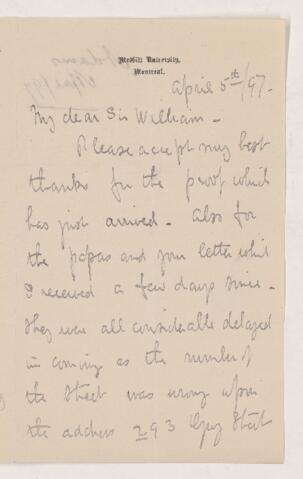 Adams
McGill University,
Montreal.
April 5th/97.
My dear Sir William -
Please accept my best
thanks for the proof which
has just arrived - Also for
the papers and your letter which
I received a few days since -
They were all considerable delayed
in coming as the number of
the Street was wrong upon
the address 293 Street